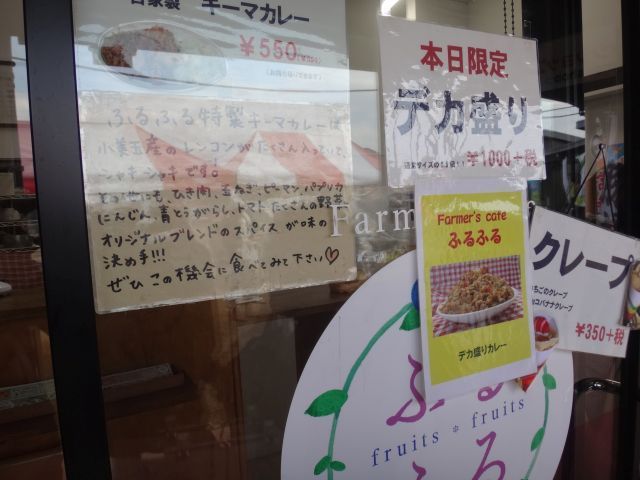 自家製 キーマカレー
¥550
ふるふる特製キーマカレーは
小美玉産のレンコンがたくさん入っていて、
シャキシャキです!
ひき肉、玉ねぎ、ピーマン、パプリカ
にんじん、青とうがらし、トマト、たくさんの野菜
オリジナルブレンドのスパイスが味の
決め手!!!
ぜひこの機会に食べてみて下さい♡
本日限定
デカ盛り
¥1000+税
Farmer's cafe
ふるふる
デカ盛りカレー
クレープ
いちごのクレープ
チョコバナナクレープ
¥350+税
Farm
ふる
fruits * fruits
ふる